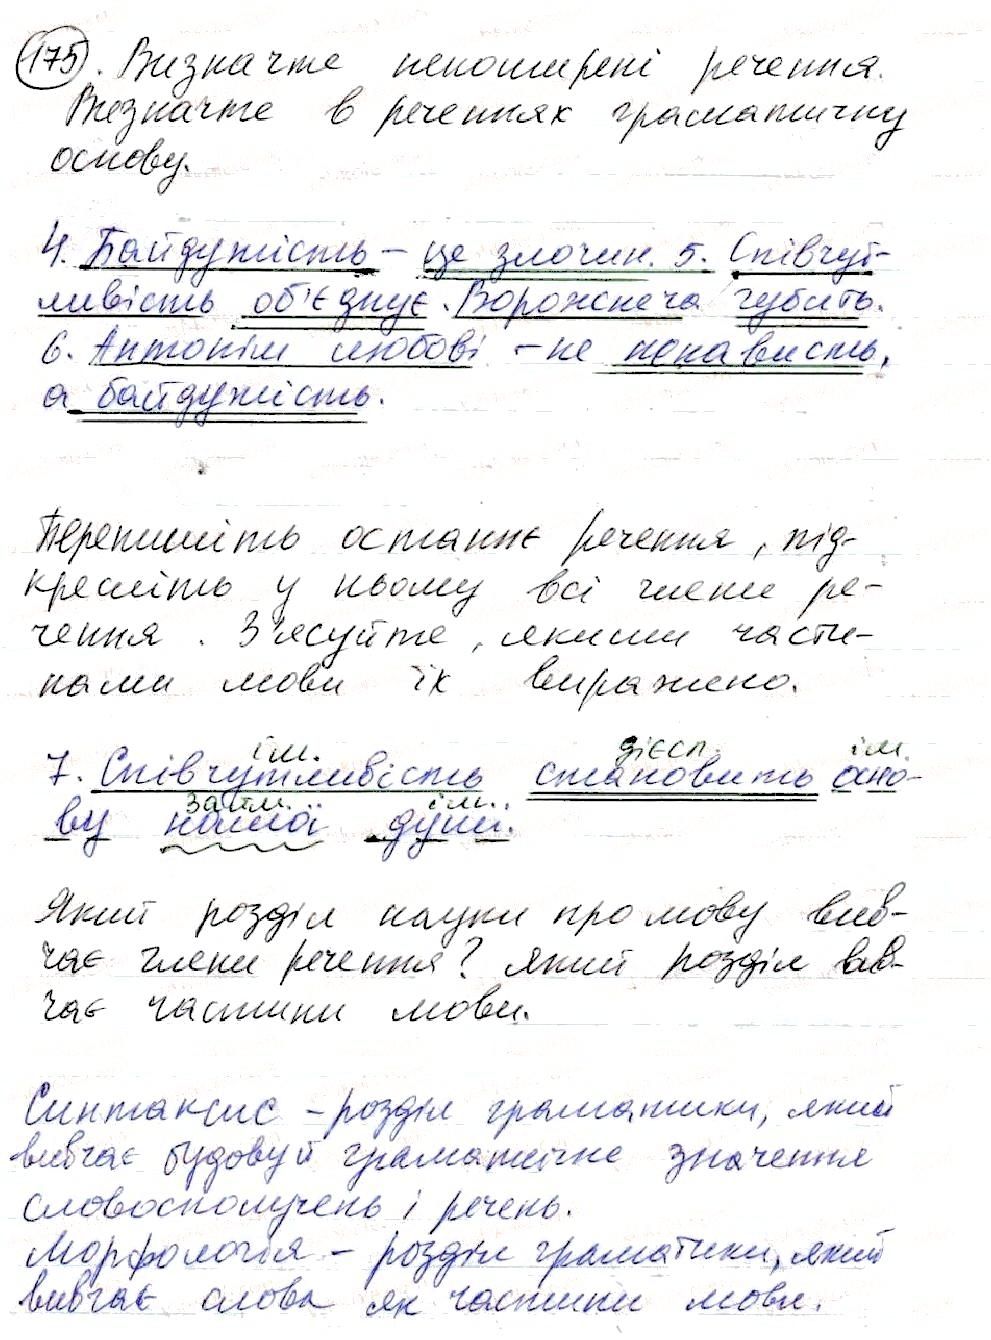 175. Визначте непоширені речення.
Визначте в реченнях граматичну
основу.
4. Байдужість – це злочин. 5. Співчут-
ливість об'єднує. Ворожнеча губить.
6. Антонім любові – не ненависть,
а байдужість.
Перепишіть останнє речення, під-
кресліть у ньому всі члени ре-
чення. З'ясуйте, якими части-
нами мови їх виражено.
ім. дієсл. ім.
7. Співчутливість становить осно-
займ. ім.
ву нашої душі.
Який розділ науки про мову вив-
чає члени речення? Який розділ вив-
чає частини мови.
Синтаксис – розділ граматики, який
вивчає будову й граматичне значення
словосполучень і речень.
Морфологія – розділ граматики, який
вивчає слова як частини мови.